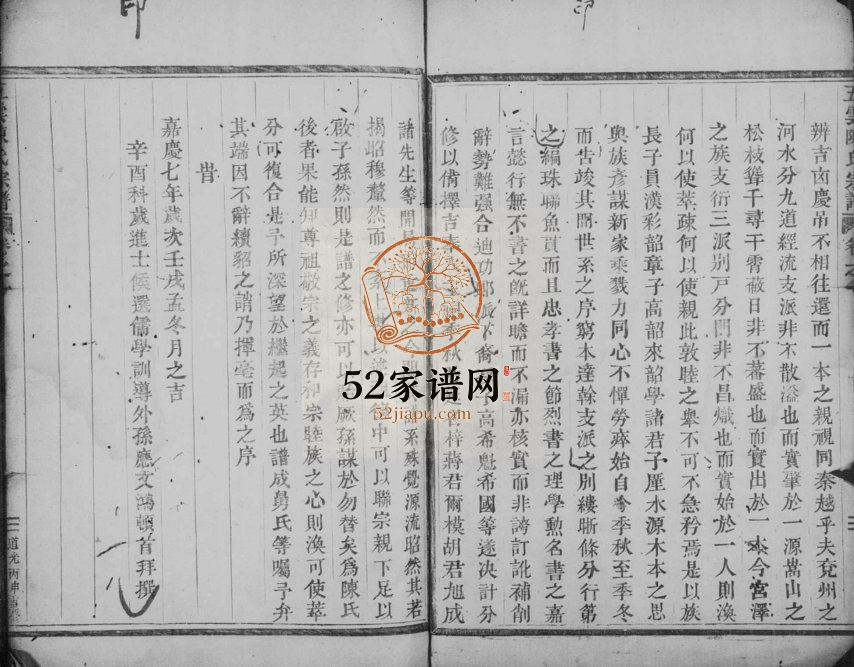 印
印
五雲陳氏宗譜
辨吉卤慶吊不相往還而一本之親視同秦越乎夫兗州之
河水分九道經流支派非不散溢也而實肇於一源嵩山之
松枝聳千尋干霄蔽日非不蕃盛也而實出於一本今宮澤
之族支衍三派別戸分門非不昌熾也而實始於一人則渙
何以使萃疎何以使親此敦睦之舉不可不急矜焉是以族
長子員漢彩韶章子高韶來韶學諸君子厪水源木本之思
與族彥謀新家乘戮力同心不憚勞瘁始自今季秋至季冬
而告竣其間世系之序窮本達榦支派之別縷晰條分行第
之編珠聯魚貫而且忠孝書之節烈書之理學勳名書之嘉
言懿行無不書之旣詳瞻而不漏亦核實而非誇訂訛補削
辭勢難强合迪功郎
高希魁希國等遂決計分
修以倩擇吉
季秋
梓蔣君爾模胡君旭成
諸先生等開
系殊覺源流昭然其若
揭昭穆釐然而
以
中可以聯宗親下足以
啟子孫然則是譜之修亦可以
厥孫謀於勿替矣爲陳氏
後者果能知尊祖敬宗之義存和宗睦族之心則渙可使萃
分可復合是予所深望於繼起之英也譜成舅氏等囑予弁
其端因不辭續貂之誚乃揮毫而爲之序
旹
嘉慶七年歲次壬戌孟冬月之吉
辛酉科歲進士候選儒學訓導外孫應文鴻頓首拜撰
五雲陳氏宗譜
道光丙申重修
52家谱网
52jiapu.com